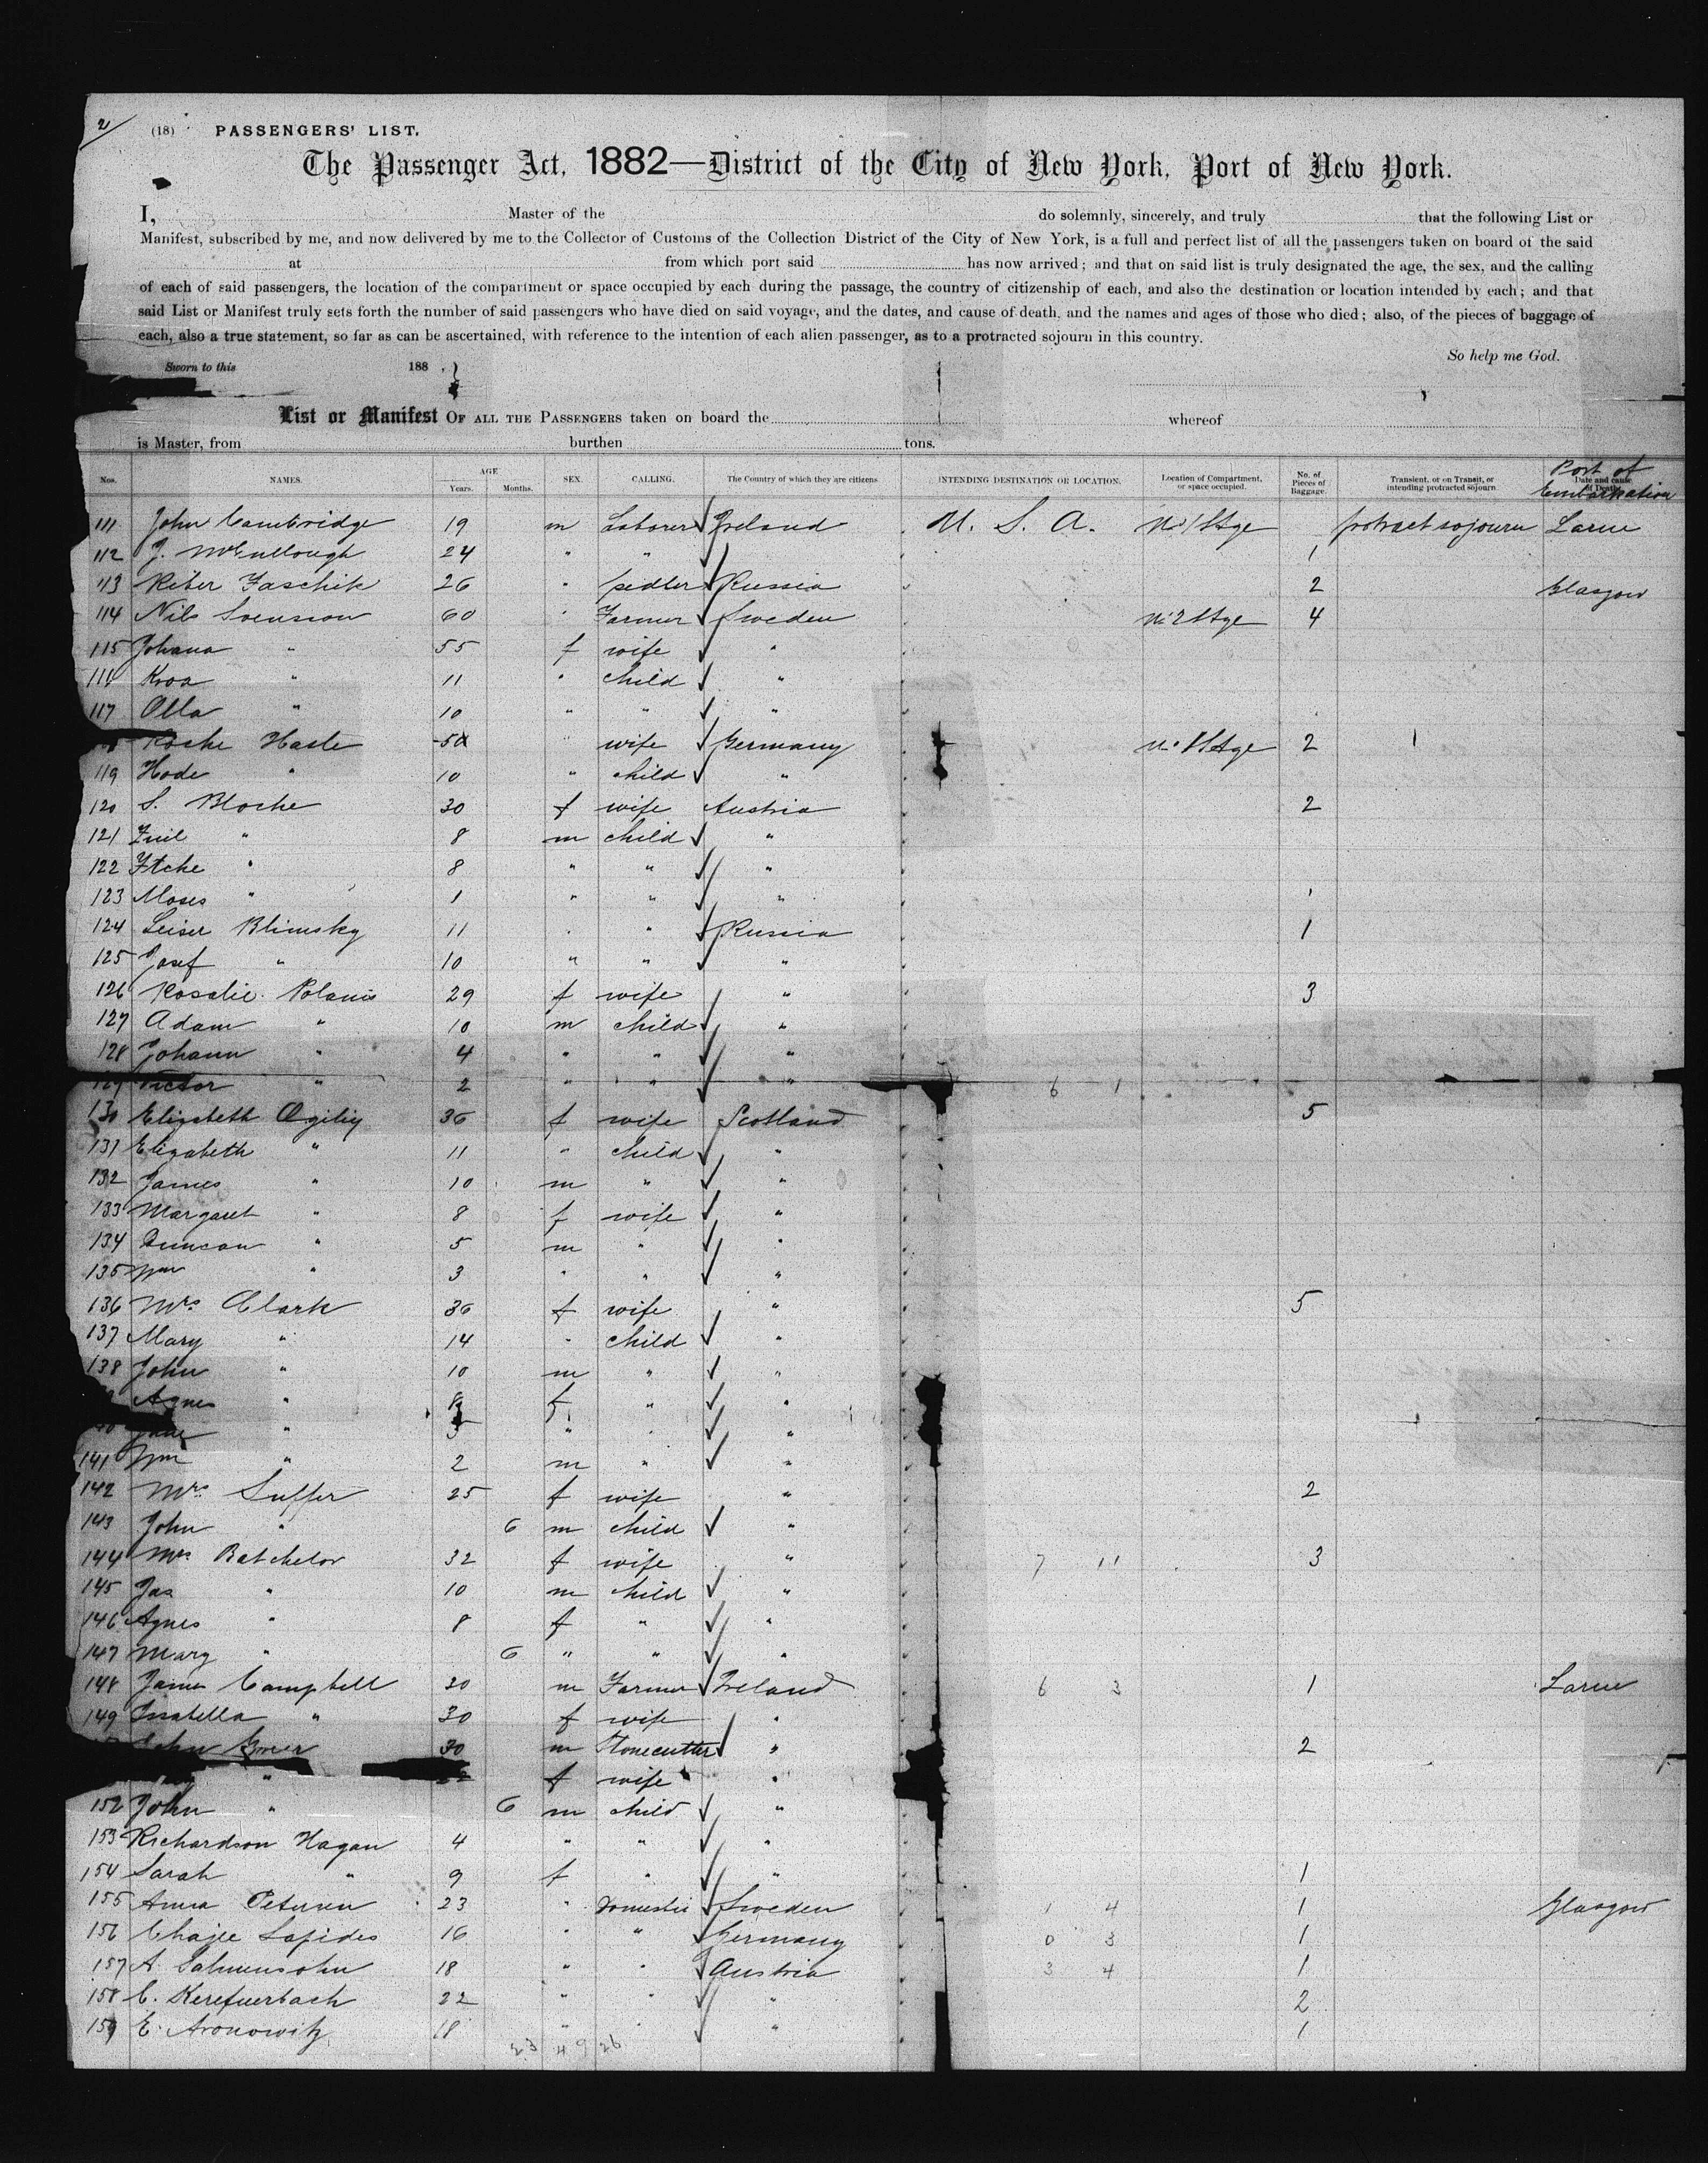 2
(18) PASSENGERS' LIST.
The Passenger Act, 1882—District of the City of New York, Port of New York.
I, Master of the do solemnly, sincerely, and truly that the following List or
Manifest, subscribed by me, and now delivered by me to the Collector of Customs of the Collection District of the City of New York, is a full and perfect list of all the passengers taken on board of the said
at from which port said has now arrived; and that on said list is truly designated the age, the sex, and the calling
of each of said passengers, the location of the compartment or space occupied by each during the passage, the country of citizenship of each, and also the destination or location intended by each; and that
said List or Manifest truly sets forth the number of said passengers who have died on said voyage, and the dates, and cause of death, and the names and ages of those who died; also, of the pieces of baggage of
each, also a true statement, so far as can be ascertained, with reference to the intention of each alien passenger, as to a protracted sojourn in this country.
So help me God.
Sworn to this 188
List or Manifest OF ALL THE PASSENGERS taken on board the whereof
is Master, from burthen tons.
Nos. NAMES. AGE Years. Months. SEX. CALLING. The Country of which they are citizens. INTENDING DESTINATION OR LOCATION. Location of Compartment, or space occupied. No. of Pieces of Baggage. Transient, or on Transit, or intending protracted sojourn Date and cause of Death. Port of Embarkation
111 John Cambridge 19 m Laborer Ireland U. S. A. No 1 Stge protract sojourn Larne
112 J. McCullough 24 " " 1
113 Reber Faschik 26 " pedler Russia 2 Glasgow
114 Nils Svensson 60 " Farmer Sweden No 2 Stge 4
115 Johana " 55 f wife "
116 Kroa " 11 " child "
117 Olla " 10 " " "
Roche Haste 50 " wife Germany No 1 Stge 2
119 Hode " 10 " child "
120 S. Bloche 30 f wife Austria 2
121 " 8 m child "
122 Itche " 8 " " "
123 Moses " 1 " " "
124 Leiser Blimsky 11 " " Russia 1
125 Josef " 10 " " "
126 Rosalie Polanis 29 f wife " 3
127 Adam " 10 m child "
128 Johann " 4 " " "
129 Victor " 2 " " " 6 1
130 Elizabeth Ogilvy 36 f wife Scotland 5
131 Elizabeth " 11 " child "
132 James " 10 m " "
133 Margaret " 8 f wife "
134 Duncan " 5 m " "
135 Wm " 3 " " "
136 Mrs Clark 36 f wife " 5
137 Mary " 14 " child "
138 John " 10 m " "
Agnes " 8 f " "
" " " "
141 Wm " 2 m " "
142 Mrs Suffer 25 f wife " 2
143 John " 6 m child "
144 Mrs Batchelor 32 f wife " 7 11 3
145 Jas " 10 m child "
146 Agnes " 8 f " "
147 Mary " 6 " " "
148 James Campbell 30 m Farmer Ireland 6 3 1 Larne
149 Issabella " 30 f wife "
John Greer 30 m Stonecutter " 2
" f wife "
152 John " 6 m child "
153 Richardson Hagan 4 " " "
154 Sarah " 9 f " " 1
155 Anna Petersen 23 " Domestic Sweden 1 4 1 Glasgow
156 Chajee Lapides 16 " " Germany 0 3 1
157 A. Salmensohn 18 " " Austria 3 4 1
158 C. Kerefuerbach 22 " " " 2
159 E. Aronowitz 18 " " " 1
23 4 9 26